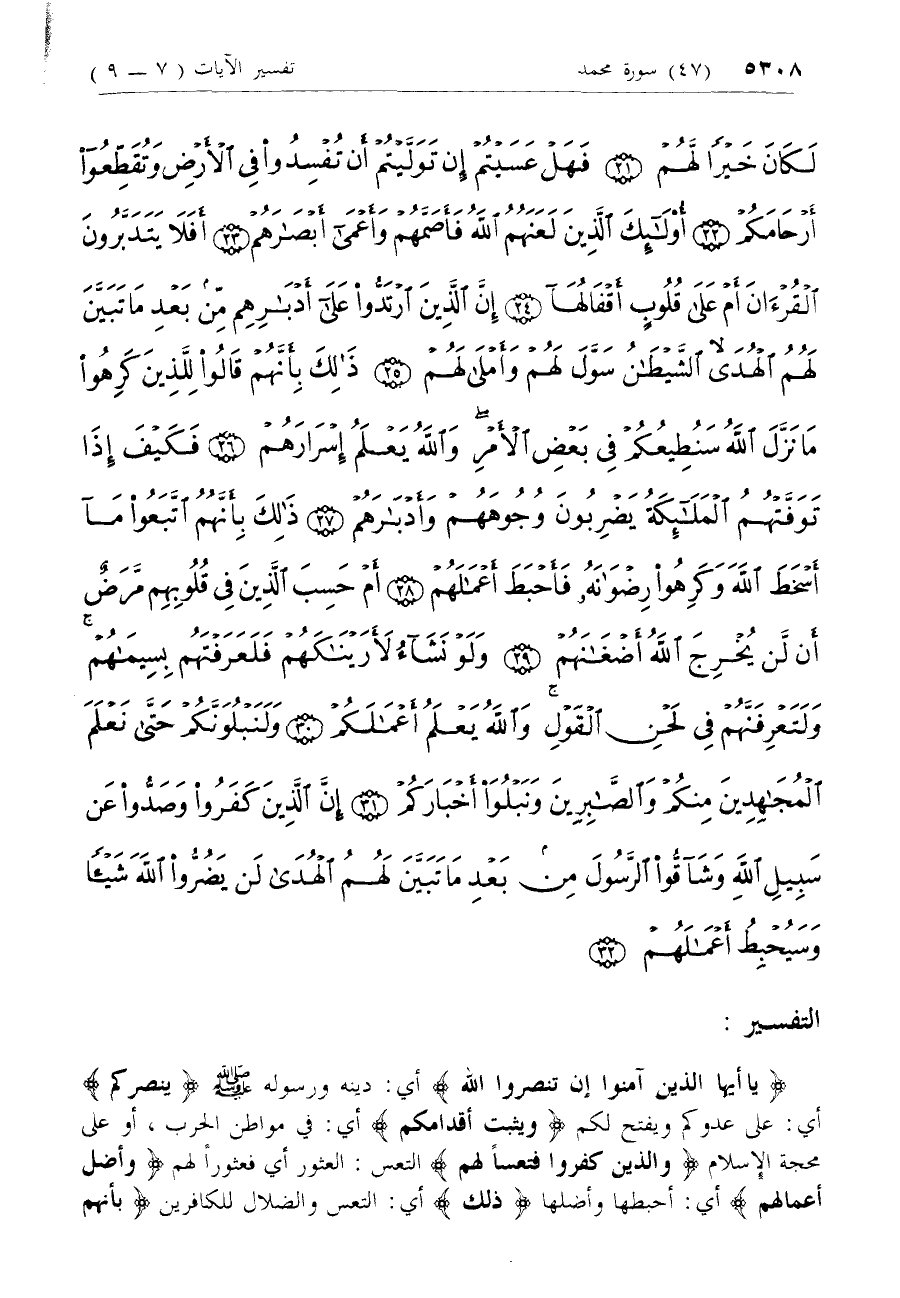 ٥٣٠٨ (٤٧) سورة محمد تفسير الآيات ( ٧ — ٩ )
لَكَانَ خَيْرًا لَّهُمْ ۝٢١ فَهَلْ عَسَيْتُمْ إِن تَوَلَّيْتُمْ أَن تُفْسِدُوا۟ فِى ٱلْأَرْضِ وَتُقَطِّعُوٓا۟
أَرْحَامَكُمْ ۝٢٢ أُو۟لَـٰٓئِكَ ٱلَّذِينَ لَعَنَهُمُ ٱللَّهُ فَأَصَمَّهُمْ وَأَعْمَىٰٓ أَبْصَـٰرَهُمْ ۝٢٣ أَفَلَا يَتَدَبَّرُونَ
ٱلْقُرْءَانَ أَمْ عَلَىٰ قُلُوبٍ أَقْفَالُهَآ ۝٢٤ إِنَّ ٱلَّذِينَ ٱرْتَدُّوا۟ عَلَىٰٓ أَدْبَـٰرِهِم مِّنۢ بَعْدِ مَا تَبَيَّنَ
لَهُمُ ٱلْهُدَىۙ ٱلشَّيْطَـٰنُ سَوَّلَ لَهُمْ وَأَمْلَىٰ لَهُمْ ۝٢٥ ذَٰلِكَ بِأَنَّهُمْ قَالُوا۟ لِلَّذِينَ كَرِهُوا۟
مَا نَزَّلَ ٱللَّهُ سَنُطِيعُكُمْ فِى بَعْضِ ٱلْأَمْرِۖ وَٱللَّهُ يَعْلَمُ إِسْرَارَهُمْ ۝٢٦ فَكَيْفَ إِذَا
تَوَفَّتْهُمُ ٱلْمَلَـٰٓئِكَةُ يَضْرِبُونَ وُجُوهَهُمْ وَأَدْبَـٰرَهُمْ ۝٢٧ ذَٰلِكَ بِأَنَّهُمُ ٱتَّبَعُوا۟ مَآ
أَسْخَطَ ٱللَّهَ وَكَرِهُوا۟ رِضْوَٰنَهُۥ فَأَحْبَطَ أَعْمَـٰلَهُمْ ۝٢٨ أَمْ حَسِبَ ٱلَّذِينَ فِى قُلُوبِهِم مَّرَضٌ
أَن لَّن يُخْرِجَ ٱللَّهُ أَضْغَـٰنَهُمْ ۝٢٩ وَلَوْ نَشَآءُ لَأَرَيْنَـٰكَهُمْ فَلَعَرَفْتَهُم بِسِيمَـٰهُمْۚ
وَلَتَعْرِفَنَّهُمْ فِى لَحْنِ ٱلْقَوْلِۚ وَٱللَّهُ يَعْلَمُ أَعْمَـٰلَكُمْ ۝٣٠ وَلَنَبْلُوَنَّكُمْ حَتَّىٰ نَعْلَمَ
ٱلْمُجَـٰهِدِينَ مِنكُمْ وَٱلصَّـٰبِرِينَ وَنَبْلُوَا۟ أَخْبَارَكُمْ ۝٣١ إِنَّ ٱلَّذِينَ كَفَرُوا۟ وَصَدُّوا۟ عَن
سَبِيلِ ٱللَّهِ وَشَآقُّوا۟ ٱلرَّسُولَ مِنۢ بَعْدِ مَا تَبَيَّنَ لَهُمُ ٱلْهُدَىٰ لَن يَضُرُّوا۟ ٱللَّهَ شَيْـًٔا
وَسَيُحْبِطُ أَعْمَـٰلَهُمْ ۝٣٢
التفسير :
﴿ يا أيها الذين آمنوا إن تنصروا الله ﴾ أي: دينه ورسوله ﷺ ﴿ ينصركم ﴾
أي: على عدوكم ويفتح لكم ﴿ ويثبت أقدامكم ﴾ أي: في مواطن الحرب ، أو على
محجة الإسلام ﴿ والذين كفروا فتعساً لهم ﴾ التعس : العثور أي فعثوراً لهم ﴿ وأضل
أعمالهم ﴾ أي: أحبطها وأضلها ﴿ ذلك ﴾ أي: التعس والضلال للكافرين ﴿ بأنهم